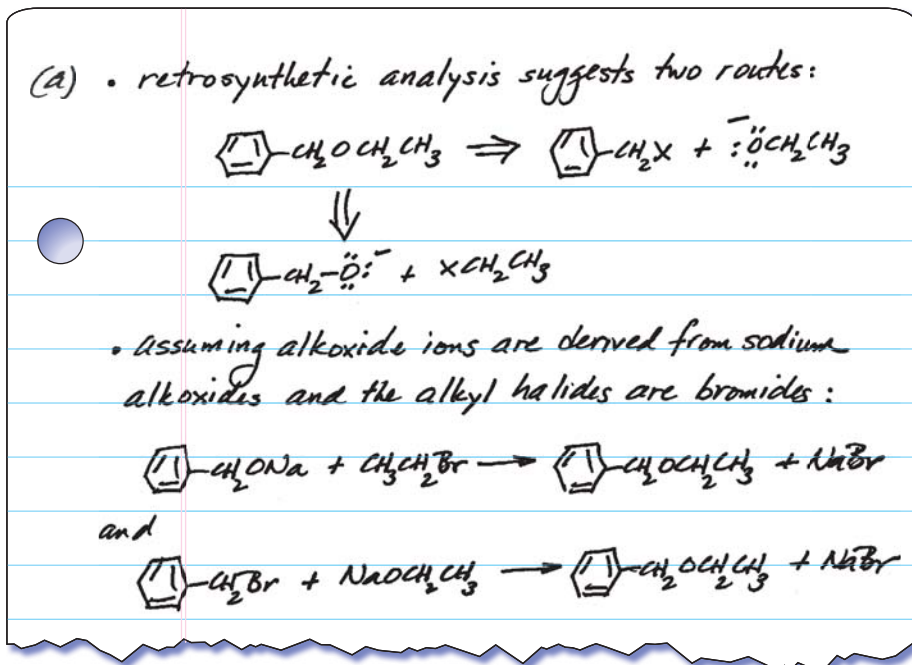 (a) • retrosynthetic analysis suggests two routes:
CH₂OCH₂CH₃ ⇒ CH₂X + ⁻:ÖCH₂CH₃
⇓
CH₂-Ö:⁻ + XCH₂CH₃
• assuming alkoxide ions are derived from sodium
alkoxides and the alkyl halides are bromides:
CH₂ONa + CH₃CH₂Br → CH₂OCH₂CH₃ + NaBr
and
CH₂Br + NaOCH₂CH₃ → CH₂OCH₂CH₃ + NaBr